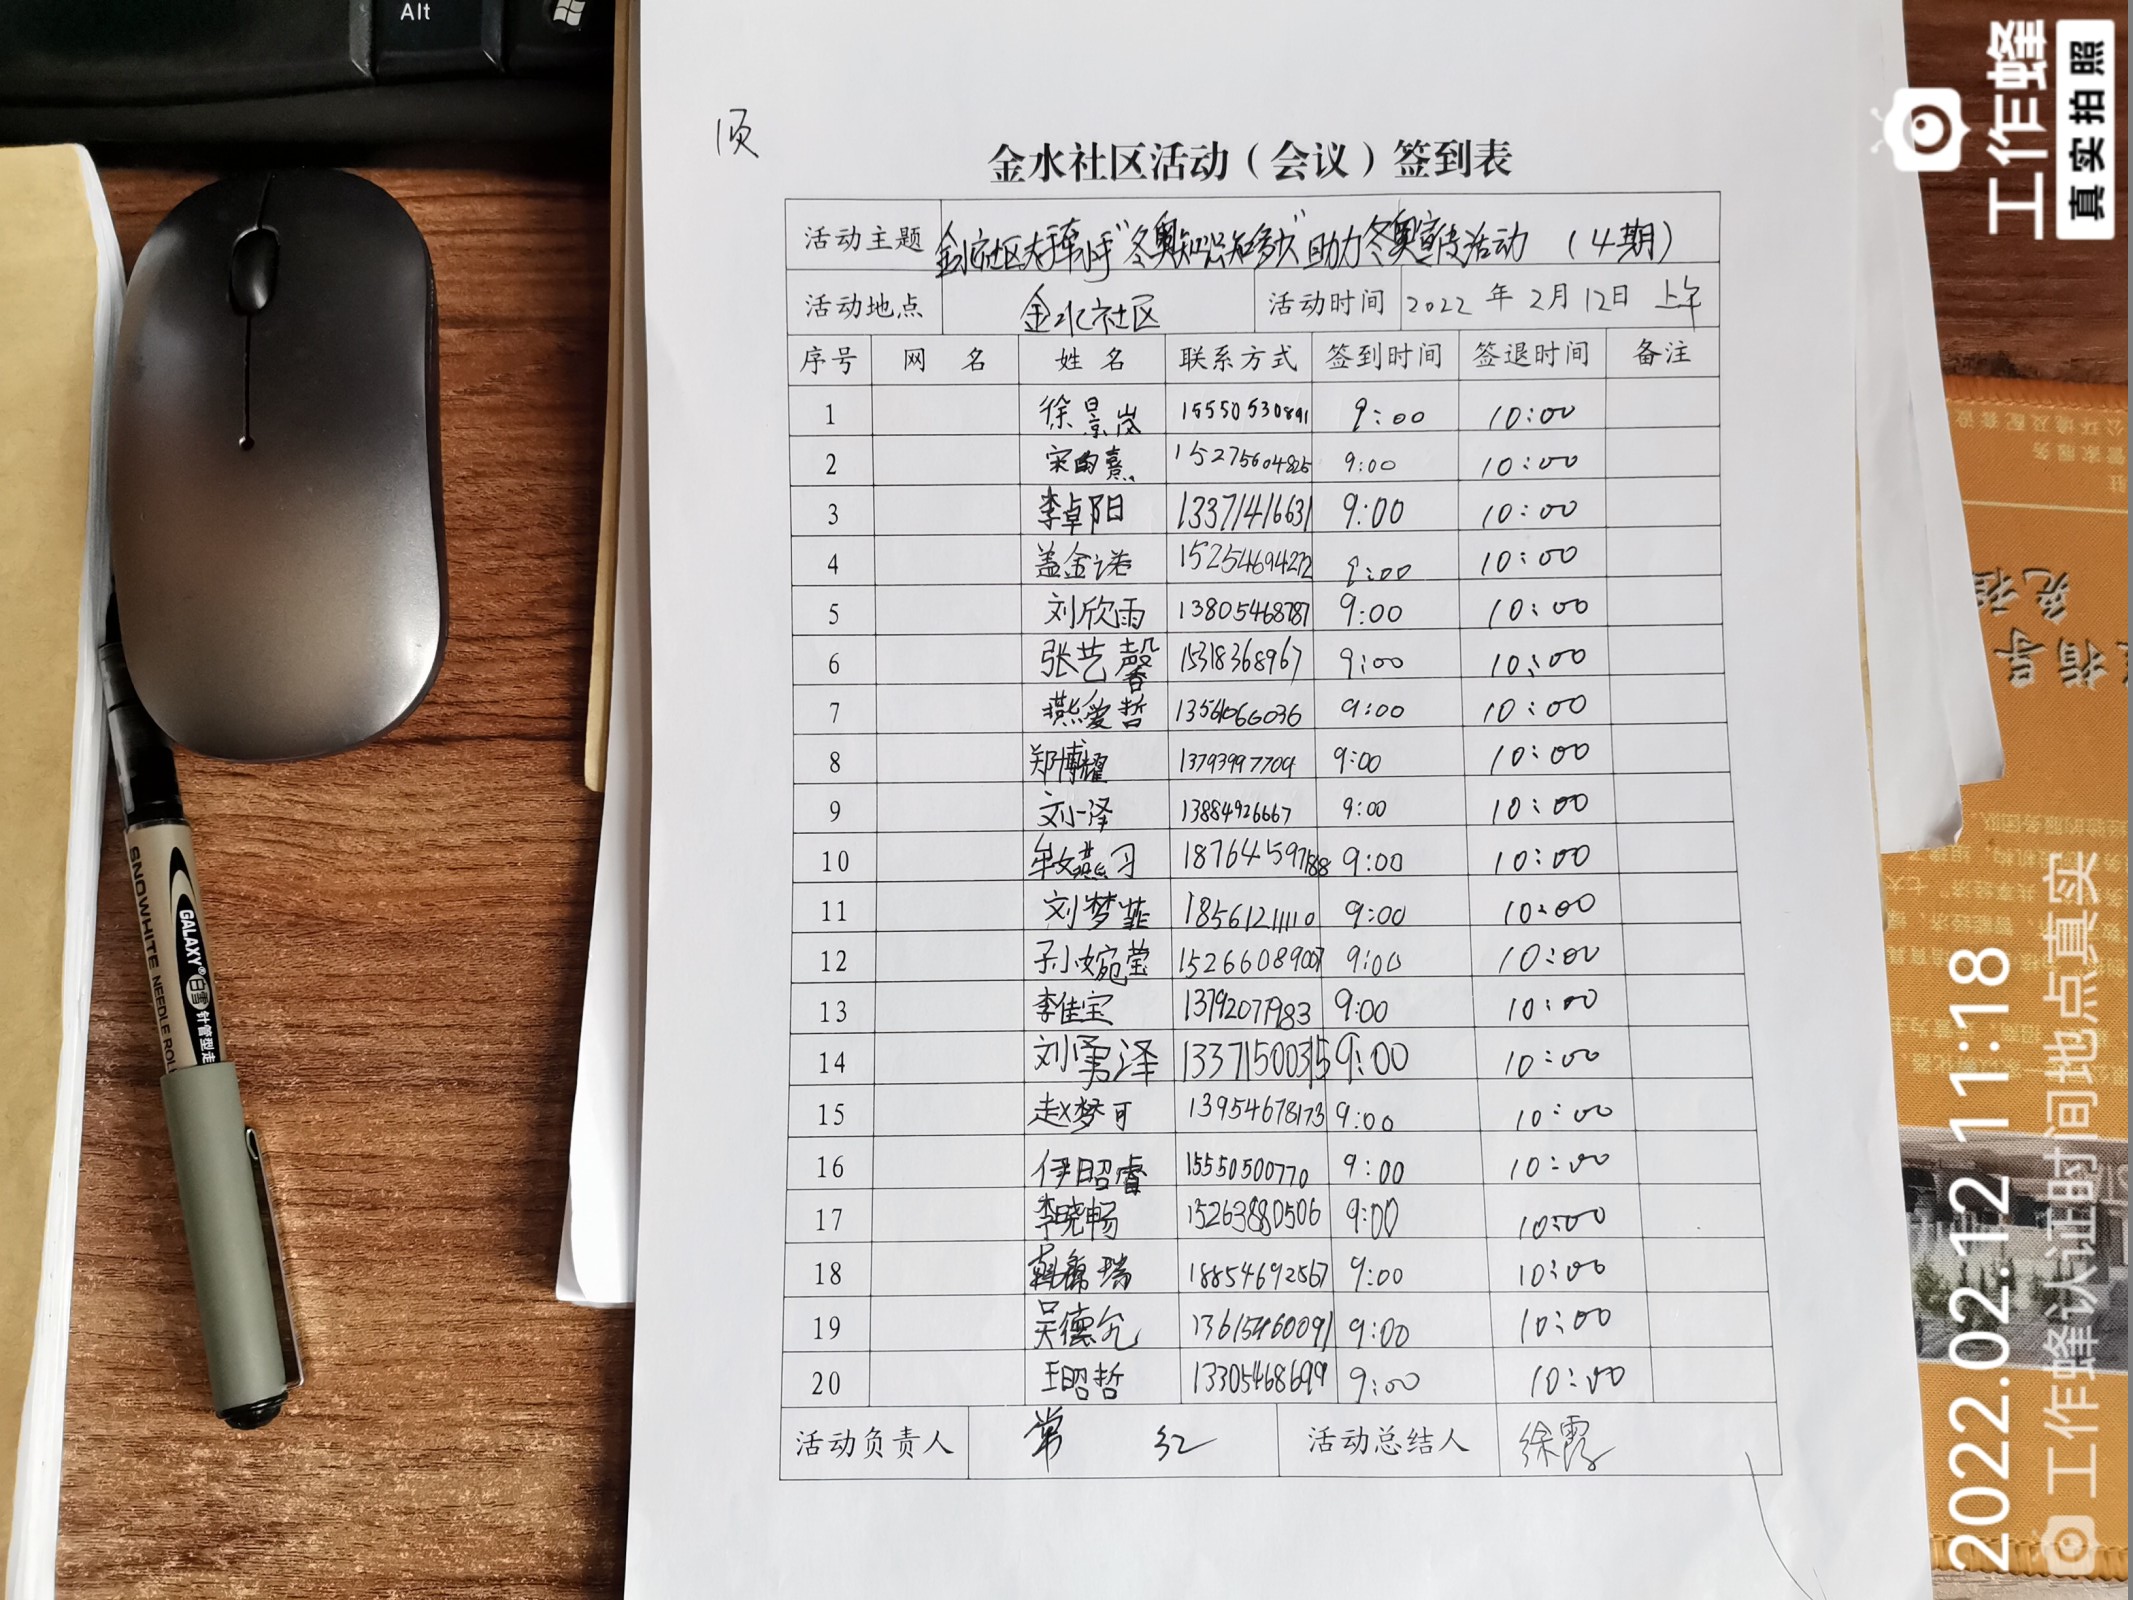 Alt
1页
金水社区活动（会议）签到表
活动主题 金水社区大手牵小手"冬奥知识知多少"助力冬奥宣传活动 （4期）
活动地点 金水社区 活动时间 2022 年 2月 12日 上午
序号 网 名 姓 名 联系方式 签到时间 签退时间 备注
1 徐景岚 15550530891 9:00 10:00
2 宋雨熹 15275604825 9:00 10:00
3 李卓阳 13371416631 9:00 10:00
4 盖金港 15254694272 9:00 10:00
5 刘欣雨 13805468787 9:00 10:00
6 张艺馨 15318368967 9:00 10:00
7 燕爱哲 13561066036 9:00 10:00
8 郑博耀 13793997704 9:00 10:00
9 刘一泽 13884926667 9:00 10:00
10 牟文燕习 18764597188 9:00 10:00
11 刘梦菲 18561211110 9:00 10:00
12 孙婉莹 15266089007 9:00 10:00
13 李佳宝 13792077983 9:00 10:00
14 刘勇泽 13371500315 9:00 10:00
15 赵梦可 13954678173 9:00 10:00
16 伊昭睿 15550500770 9:00 10:00
17 李晓畅 15263880506 9:00 10:00
18 瑞 18854692567 9:00 10:00
19 吴德允 13615460091 9:00 10:00
20 王昭哲 13305468699 9:00 10:00
活动负责人 常 红 活动总结人 徐霞
SNOWHITE NEEDLE ROLL
GALAXY® 白雪 针管型走
工作蜂
真实拍照
2022.02.12 11:18
工作蜂认证时间地点真实